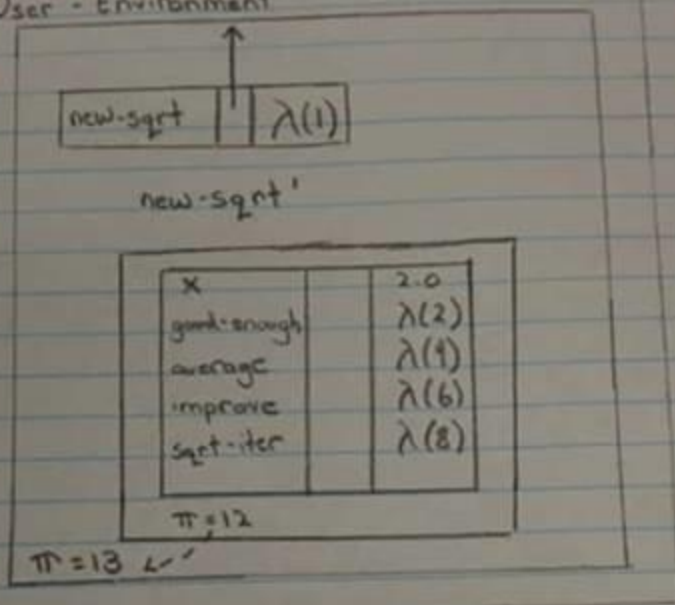 User - Environment
new-sqrt λ(1)
new-sqrt'
x 2.0
good-enough λ(2)
average λ(4)
improve λ(6)
sqrt-iter λ(8)
π=12
π=13